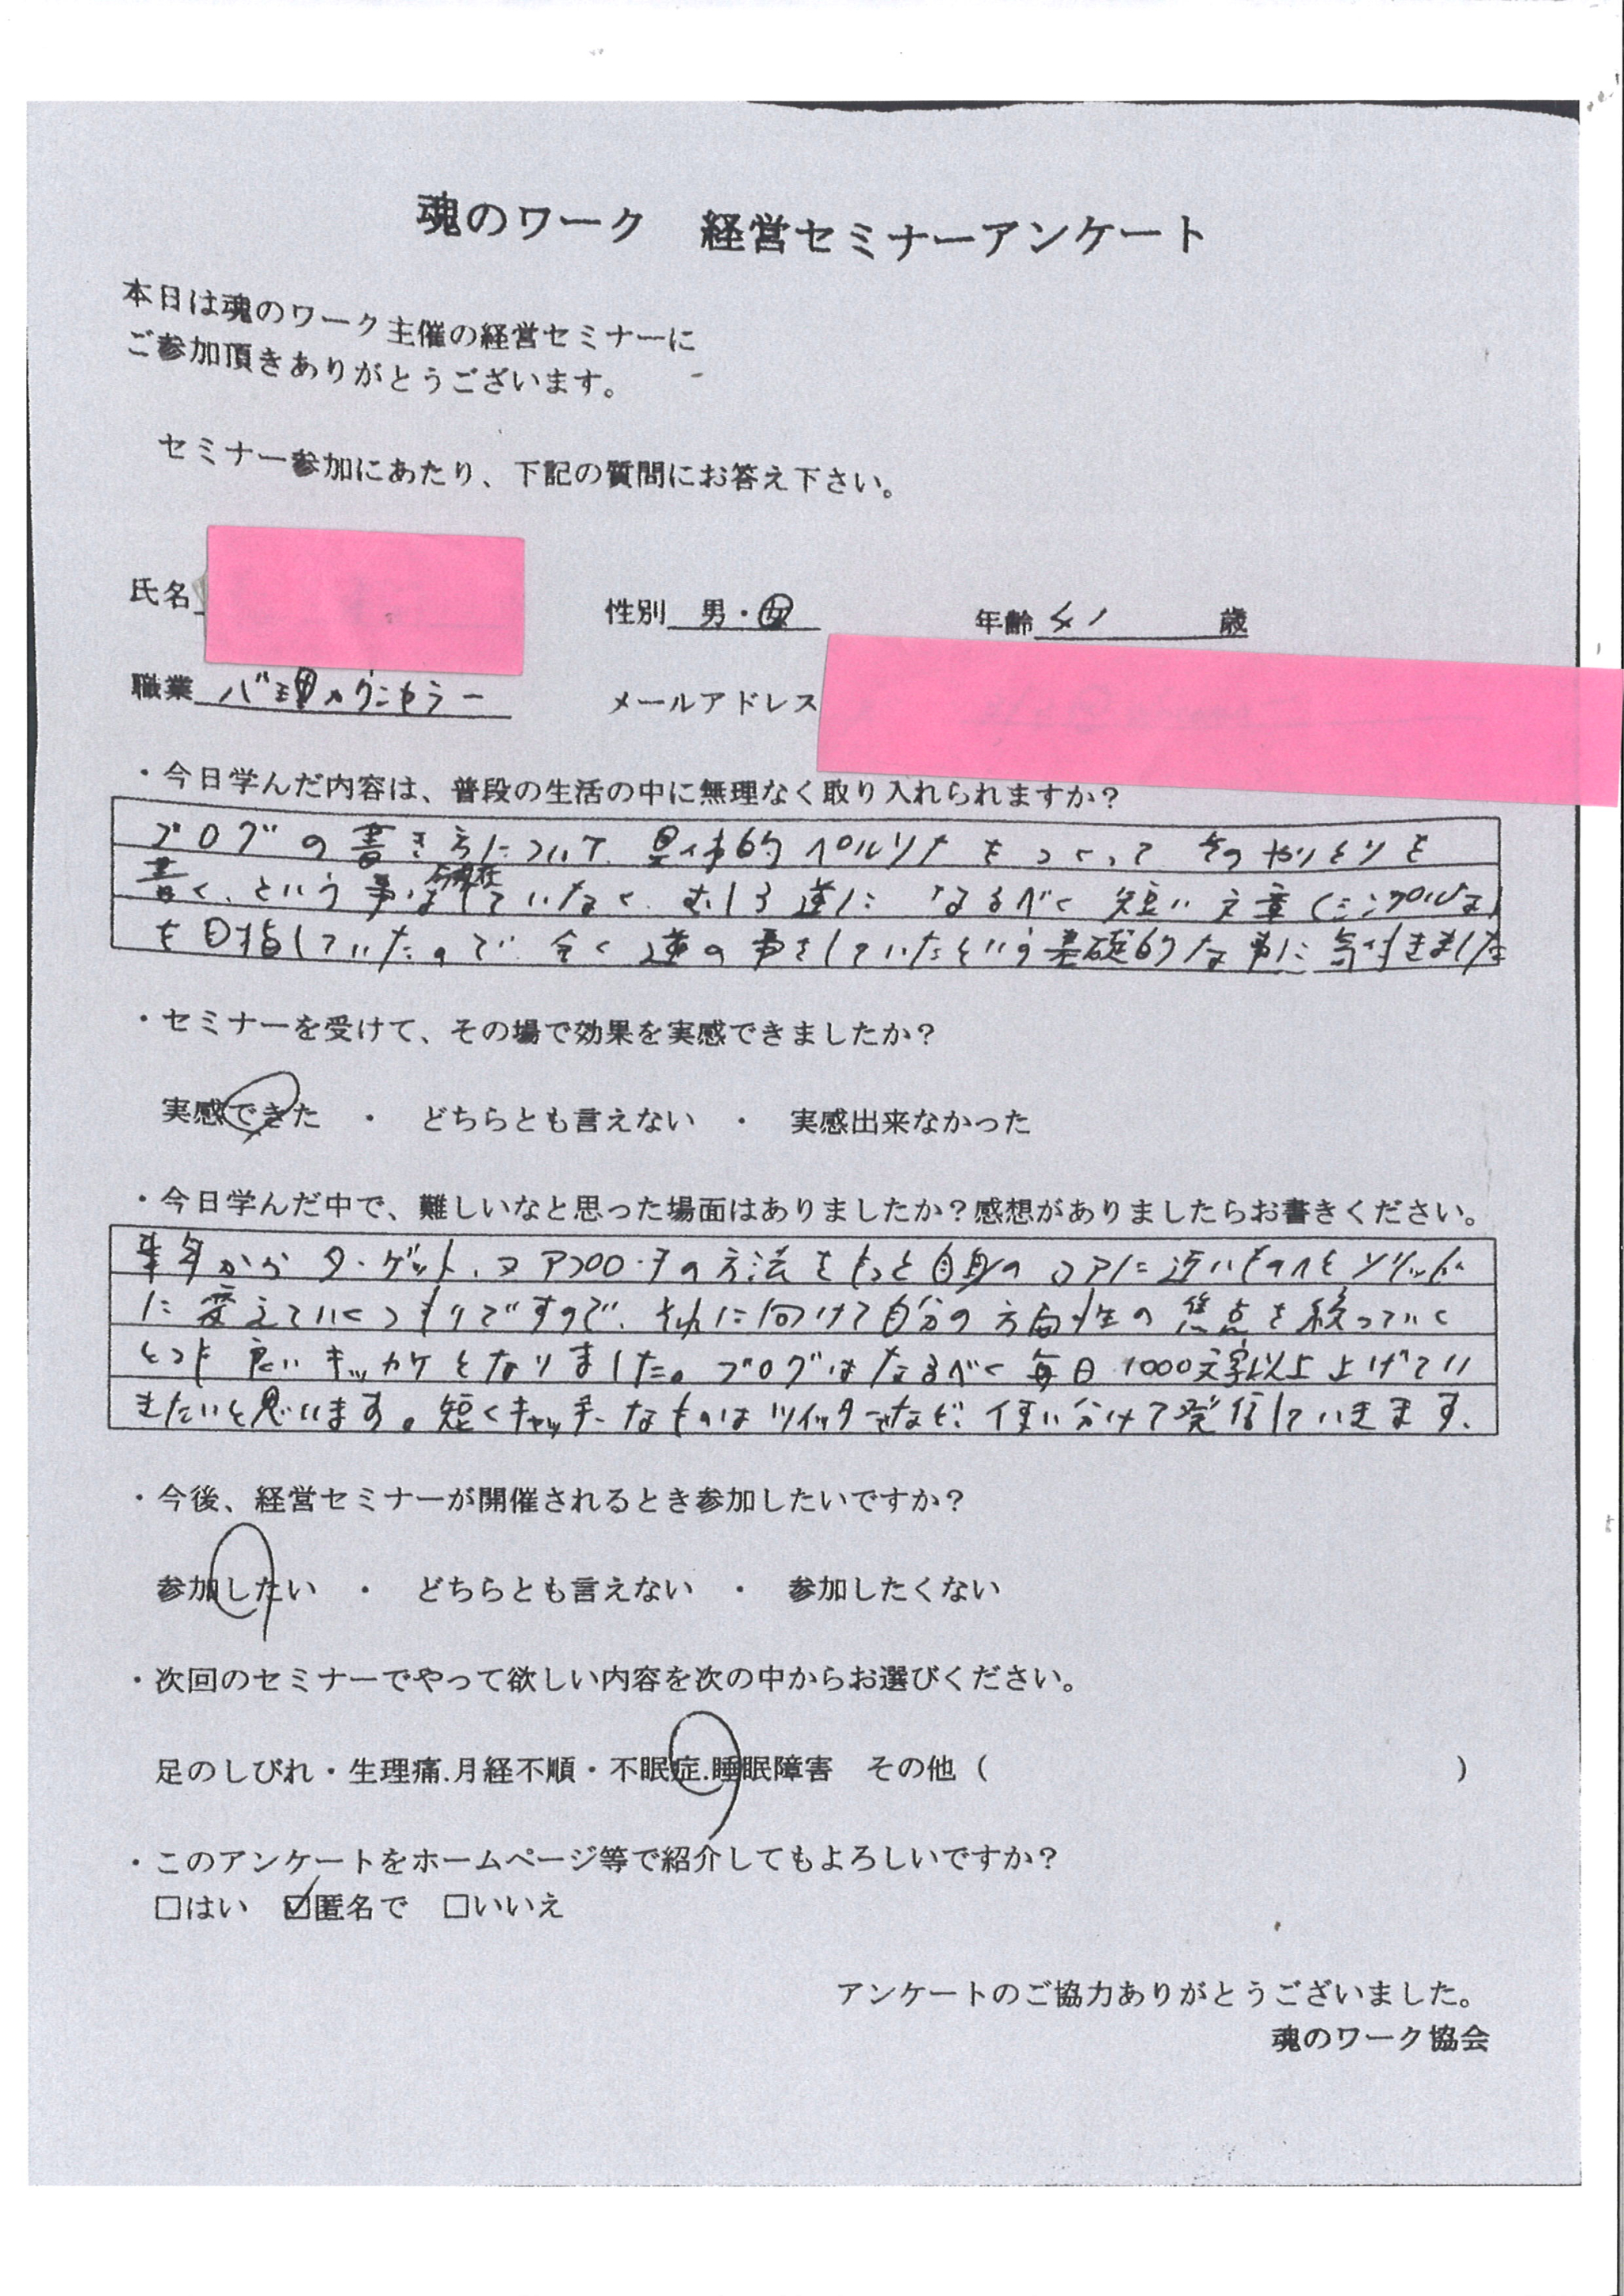 魂のワーク 経営セミナーアンケート
本日は魂のワーク主催の経営セミナーに
ご参加頂きありがとうございます。
セミナー参加にあたり、下記の質問にお答え下さい。
氏名 性別 男・女 年齢 41 歳
職業 心理カウンセラー メールアドレス
・今日学んだ内容は、普段の生活の中に無理なく取り入れられますか?
ブログの書き方について、具体的ペルソナをつくって そのやりとりを
書く、という事は今現在していなく、むしろ逆に なるべく短い文章(シンプルな)
を目指していたので 全く逆の事をしていたという基礎的な事に気付きました
・セミナーを受けて、その場で効果を実感できましたか?
実感できた ・ どちらとも言えない ・ 実感出来なかった
・今日学んだ中で、難しいなと思った場面はありましたか?感想がありましたらお書きください。
来年から ターゲット、アプローチの方法をもっと自身のコアに近いものへと
に変えていくつもりですので、それに向けて自分の方向性の焦点を絞っていく
とても良いキッカケとなりました。ブログはなるべく毎日1000文字以上上げてい
きたいと思います。短くキャッチーなものはツイッターなど、使い分けて発信していきます。
・今後、経営セミナーが開催されるとき参加したいですか?
参加したい ・ どちらとも言えない ・ 参加したくない
・次回のセミナーでやって欲しい内容を次の中からお選びください。
足のしびれ・生理痛.月経不順・不眠症.睡眠障害 その他( )
・このアンケートをホームページ等で紹介してもよろしいですか?
□はい ☑匿名で □いいえ
アンケートのご協力ありがとうございました。
魂のワーク協会